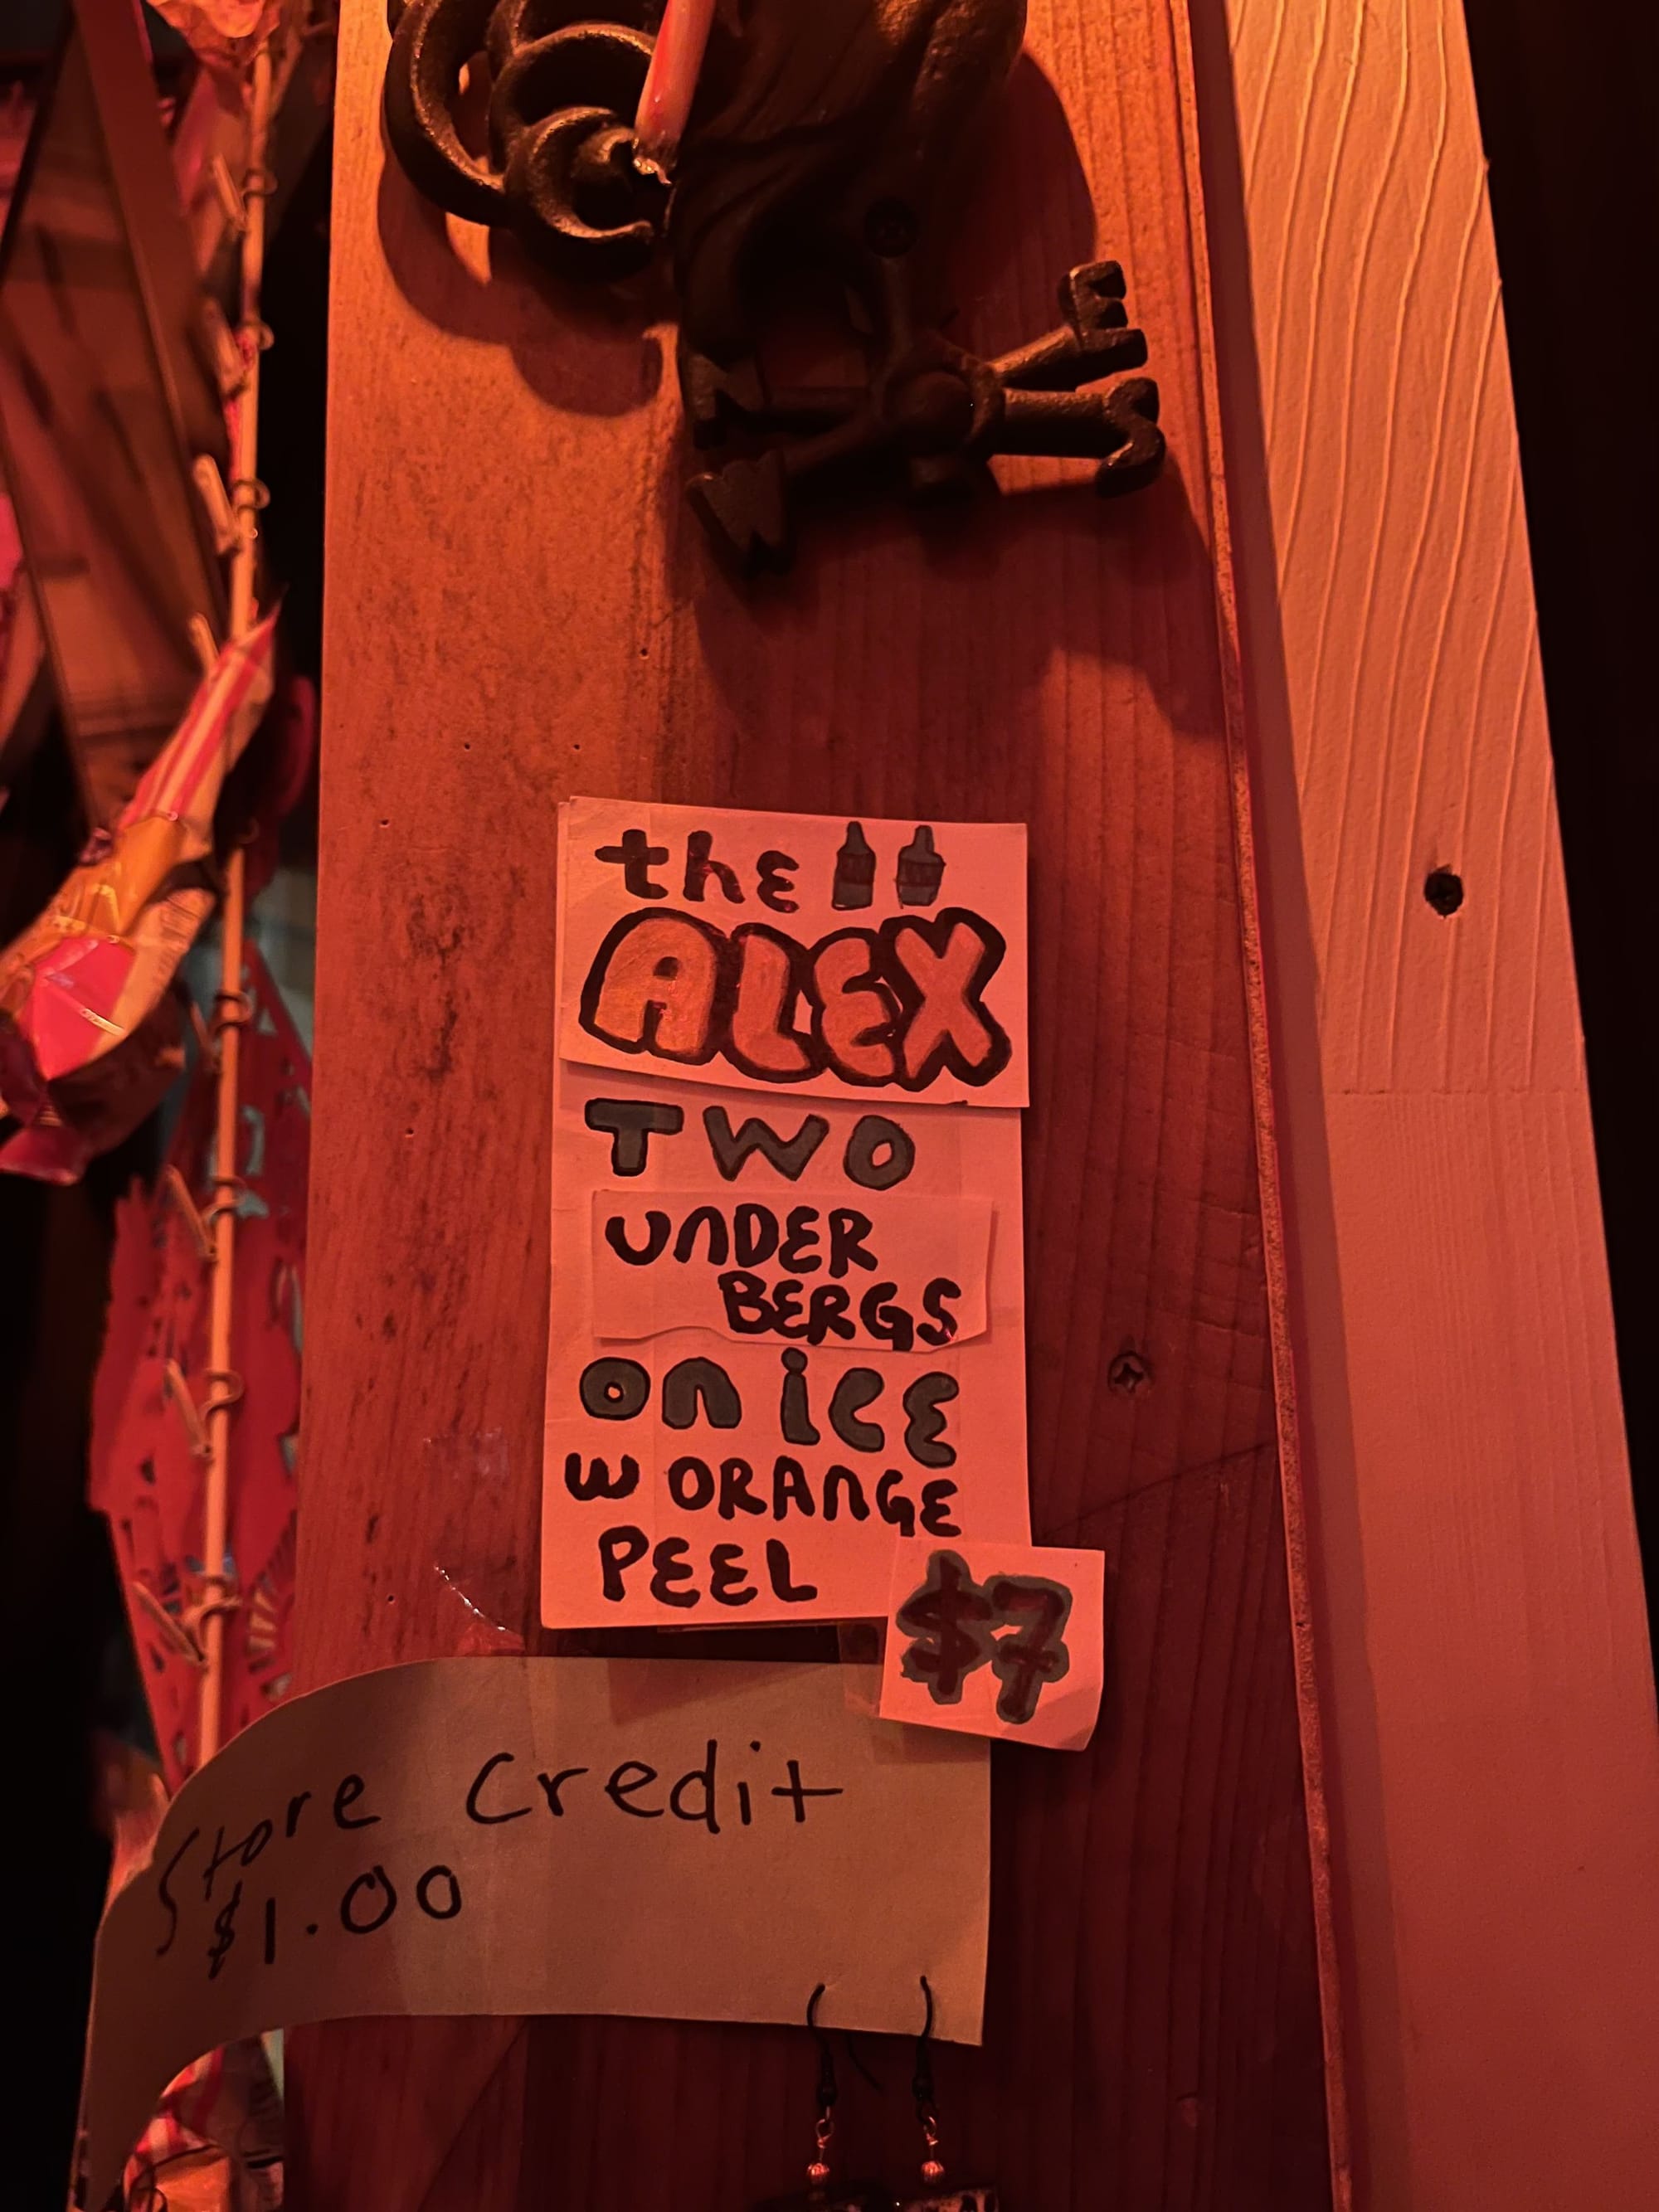 E
S
N
W
the
ALEX
TWO
UNDER
BERGS
ON ICE
W ORANGE
PEEL
$7
Store Credit
$1.00